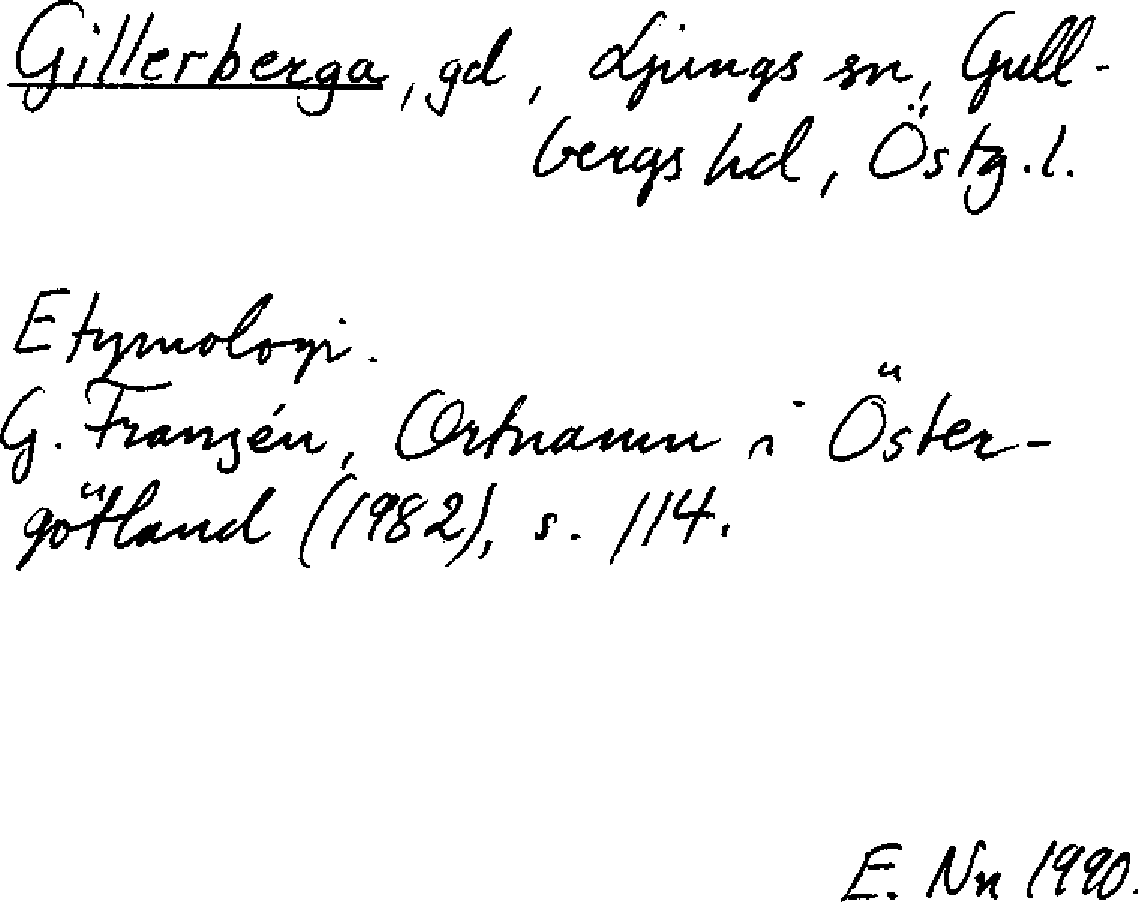 Gillerberga, gd, Ljungs sn, Gull-
bergs hd, Östg.l.
Etymologi.
G. Franzén, Ortnamn i Öster-
götland (1982), s. 114.
E. Nn 1990.